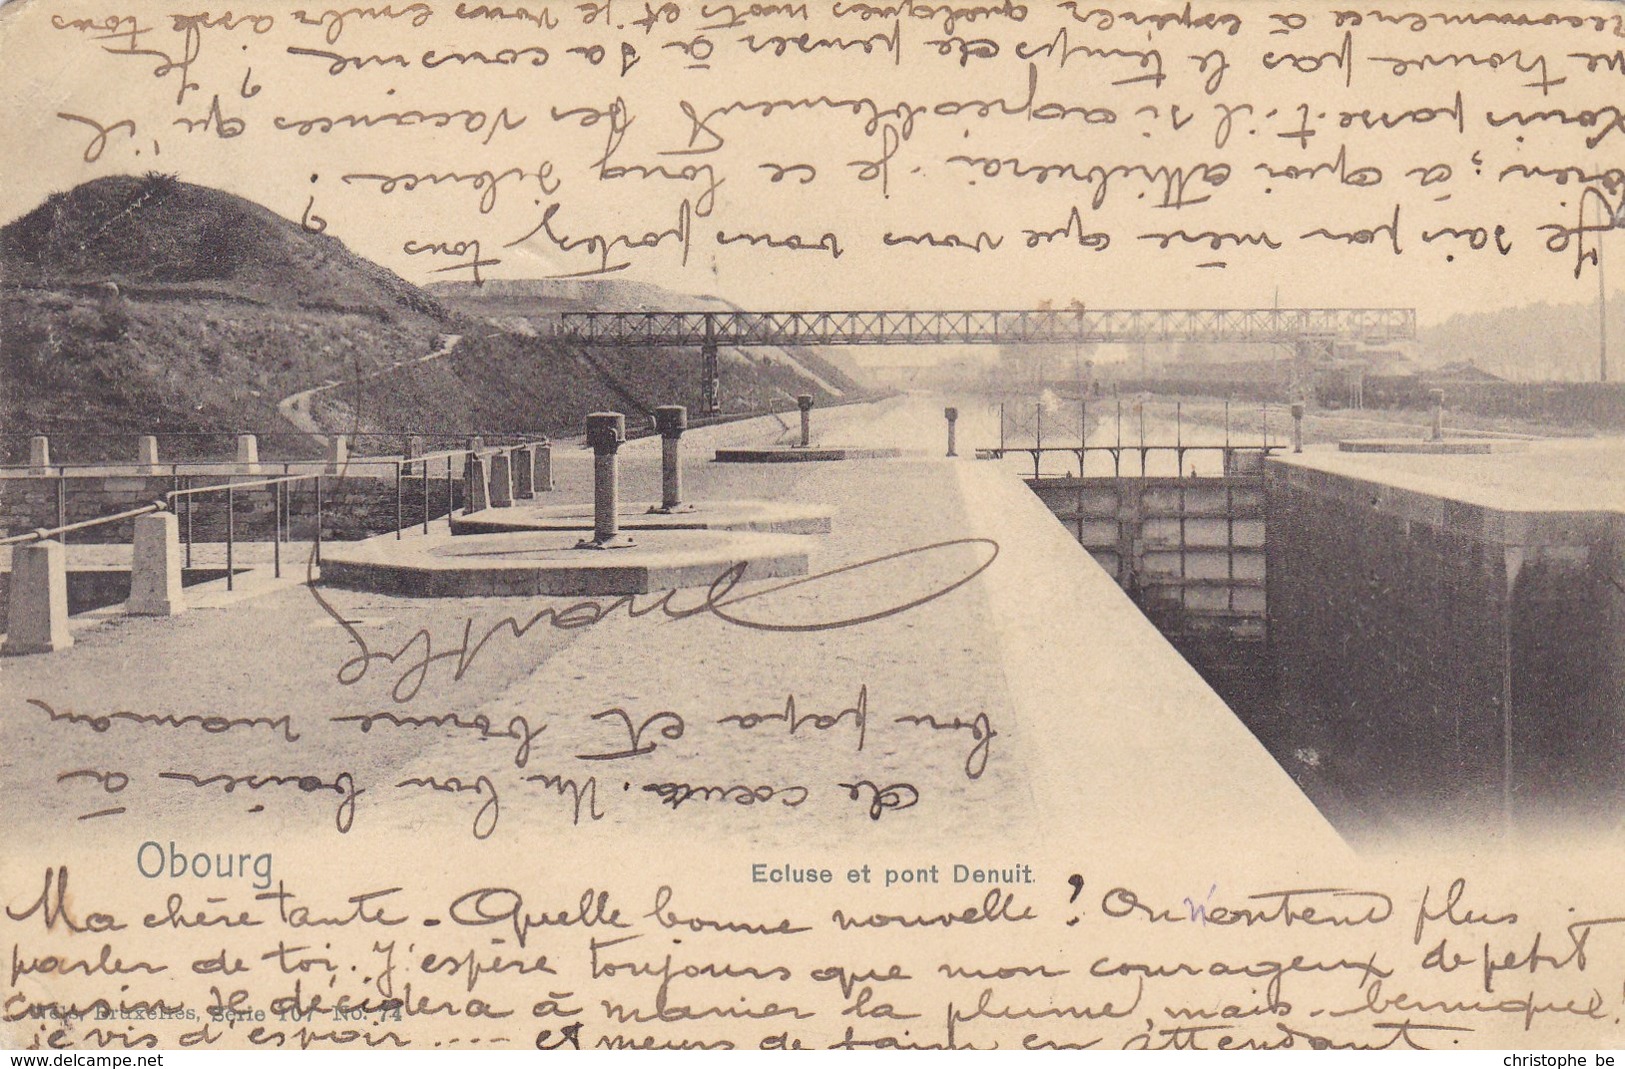 Obourg
Ecluse et pont Denuit.
Ma chère tante - Quelle bonne nouvelle ? On n'entend plus
parler de toi. J'espère toujours que mon courageux de petit
cousin se décidera à manier la plume, mais - bernique !
je vis d'espoir .... et meurs de faim en attendant.
Nels, Bruxelles, Série 107 No. 74
Je sais par mère que vous vous portez tous
bien ; à quoi attribuerai-je ce long silence ?
Louis passe-t-il si agréablement ses vacances qu'il
ne trouve pas le temps de penser à sa cousine ? Je
recommence à espérer quelques mots et je vous embrasse tous
de cœur. Un bon baiser à
bon papa et bonne maman
Marthe
www.delcampe.net
christophe be